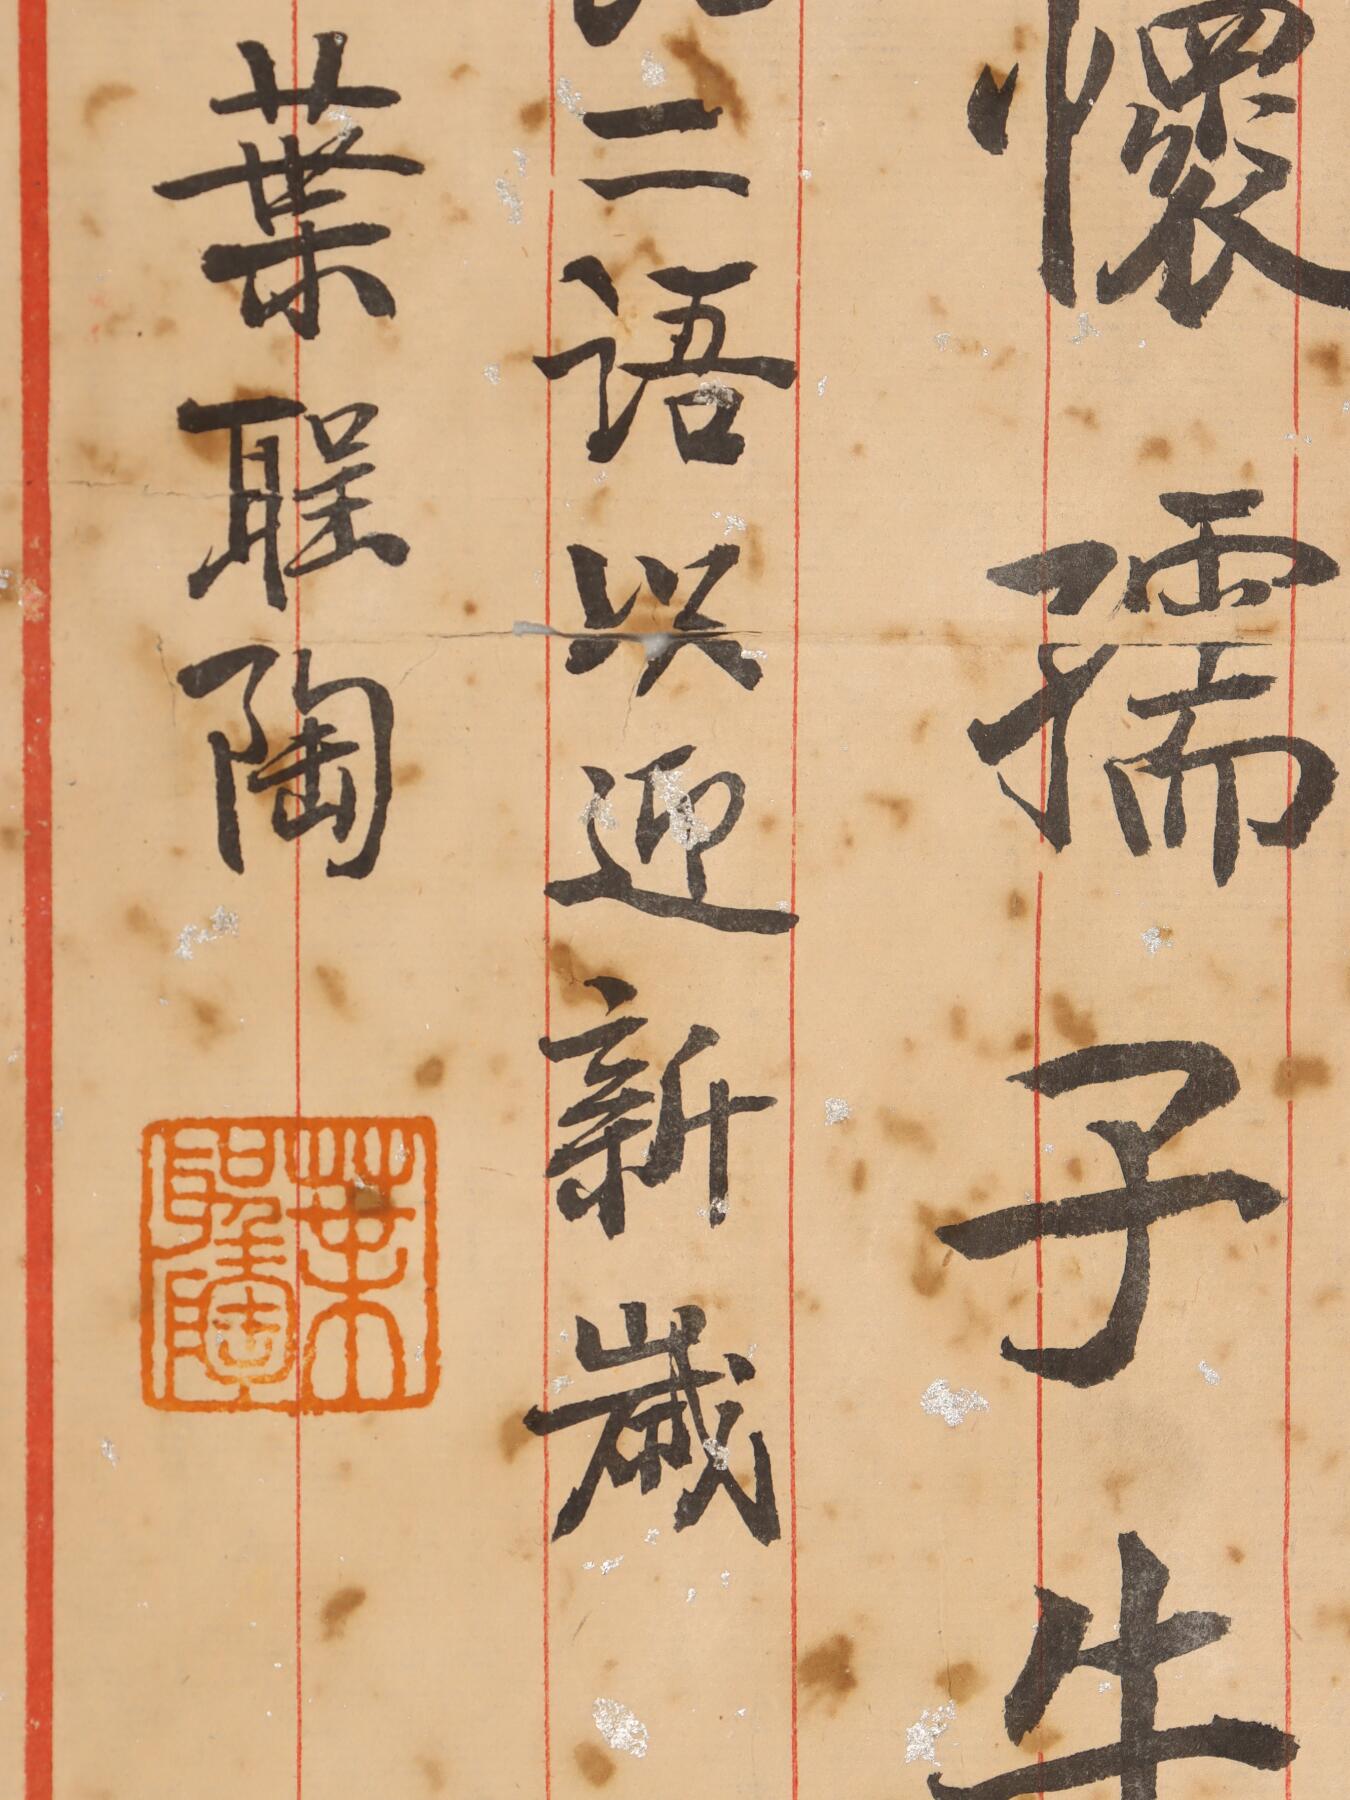 懷孺子牛
二语以迎新嵗
葉聖陶
葉聖陶